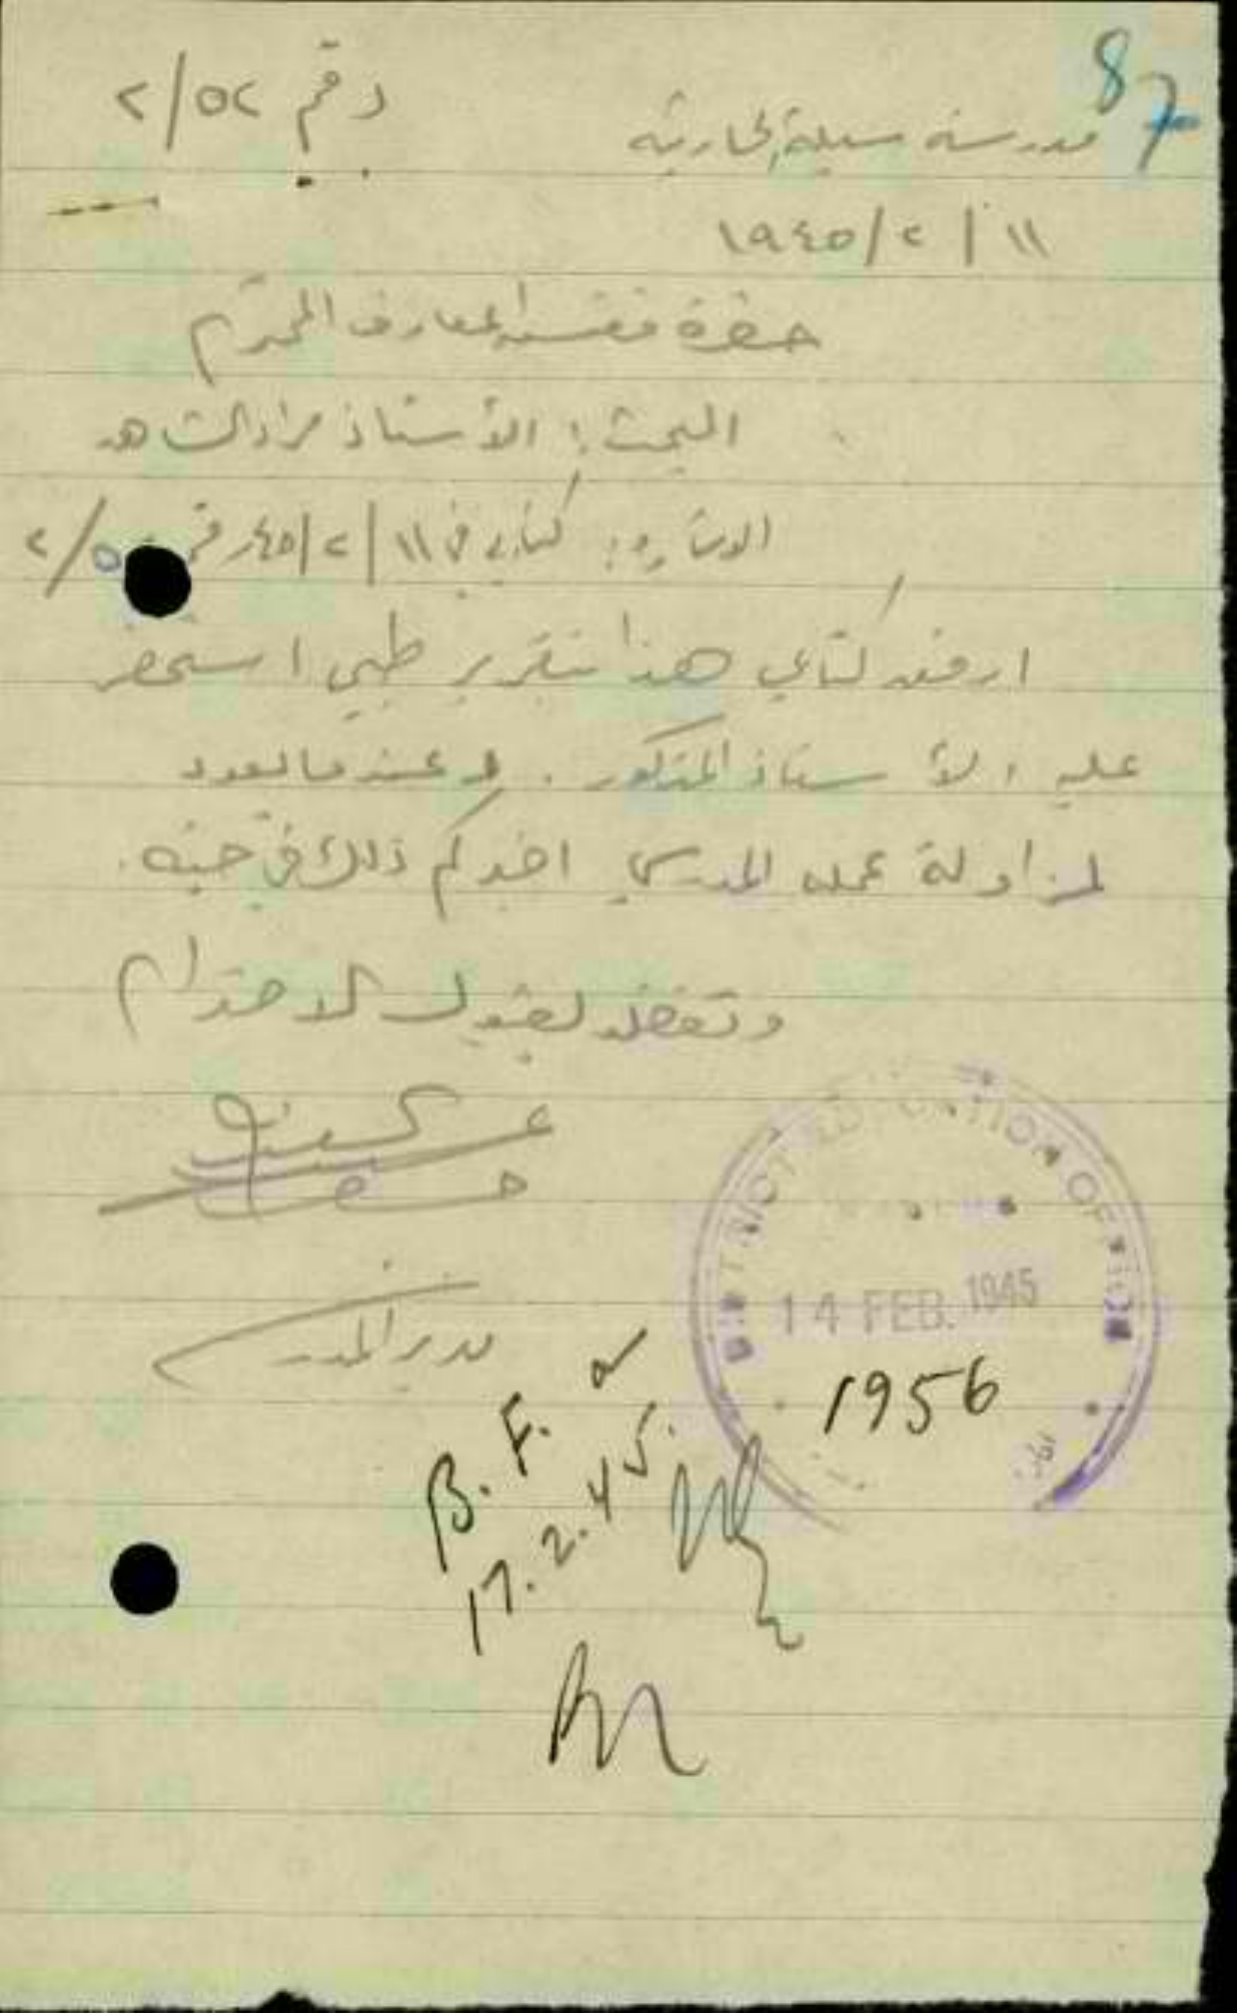 87
مدرسة سيلة الحارثيه
رقم ٢/٥٢
١١/٢/١٩٤٥
حضرة مفتش المعارف المحترم
البحث: الأستاذ مراد الشاهد
الاشاره: كتابي في ١١/٢/٤٥ رقم ٢/٥
ارفق كتابي هذا بتقرير طبي استحضر
عليه الأستاذ المذكور. وعندما يعود
لمزاولة عمله المدرسي اخبركم ذلك في حينه.
وتفضلوا بقبول الاحترام
مدير المدرسة
DISTRICT EDUCATION OFFICE
14 FEB. 1945
1956
B. F.
17.2.45.